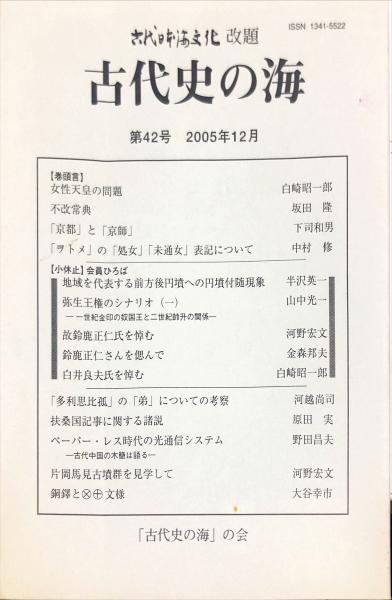 ISSN 1341-5522
古代日本海文化 改題
古代史の海
第42号 2005年12月
【巻頭言】
女性天皇の問題 白崎昭一郎
不改常典 坂田 隆
「京都」と「京師」 下司和男
「ヲトメ」の「処女」「未通女」表記について 中村 修
【小休止】会員ひろば
地域を代表する前方後円墳への円墳付随現象 半沢英一
弥生王権のシナリオ（一） 山中光一
―一世紀金印の奴国王と二世紀帥升の関係―
故鈴鹿正仁氏を悼む 河野宏文
鈴鹿正仁さんを偲んで 金森邦夫
白井良夫氏を悼む 白崎昭一郎
「多利思比孤」の「弟」についての考察 河越尚司
扶桑国記事に関する諸説 原田 実
ペーパー・レス時代の光通信システム 野田昌夫
―古代中国の木簡は語る―
片岡馬見古墳群を見学して 河野宏文
銅鐸と⊗⊕文様 大谷幸市
「古代史の海」の会